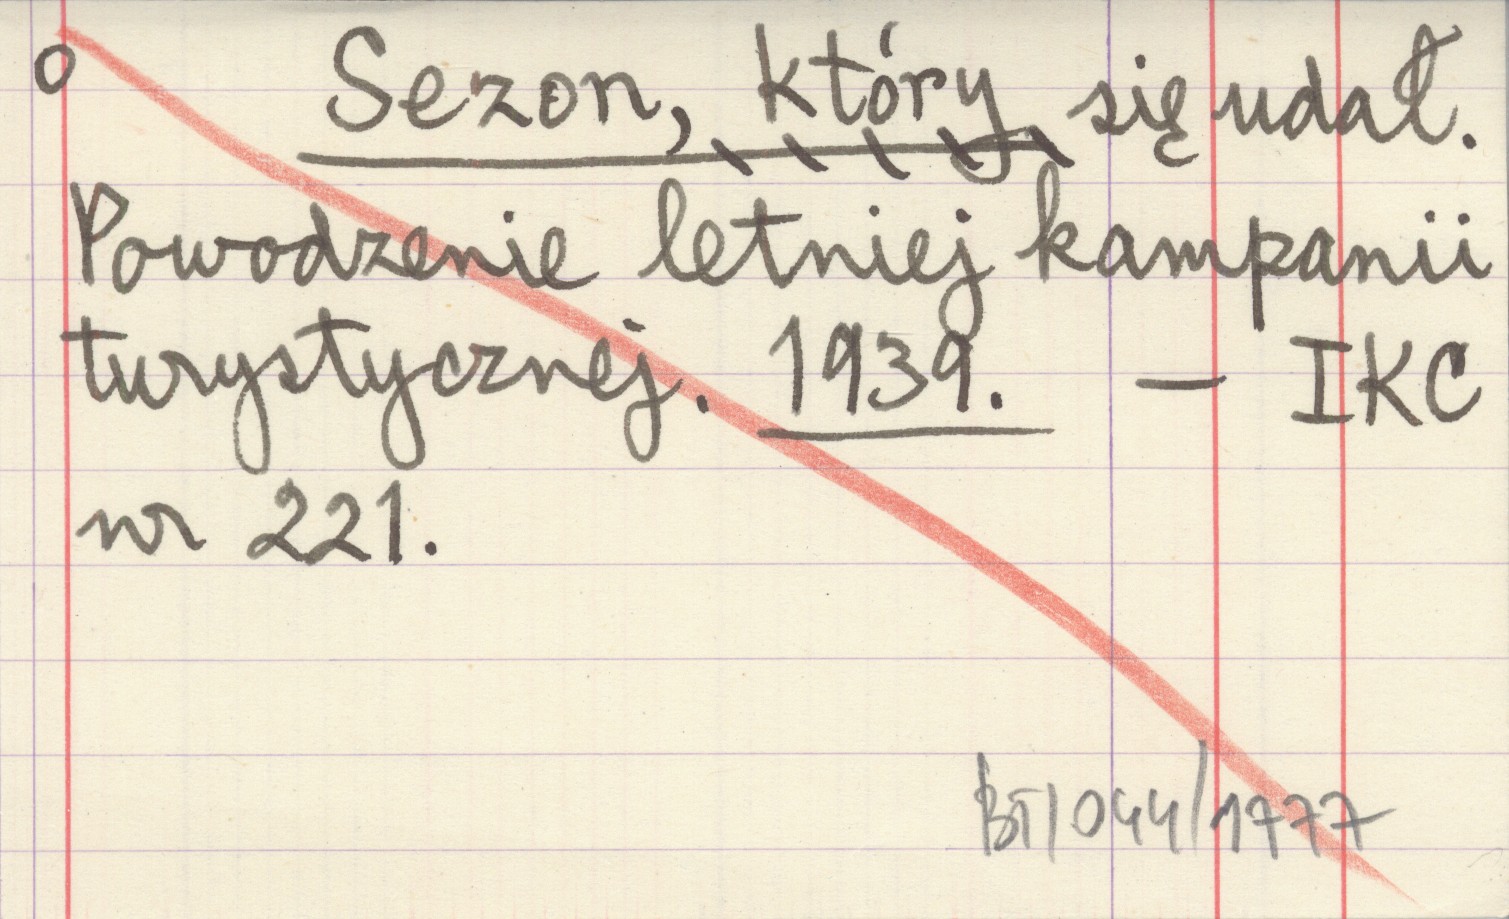 o Sezon, który się udał.
Powodzenie letniej kampanii
turystycznej. 1939. — IKC
nr 221.
BT/044/1777